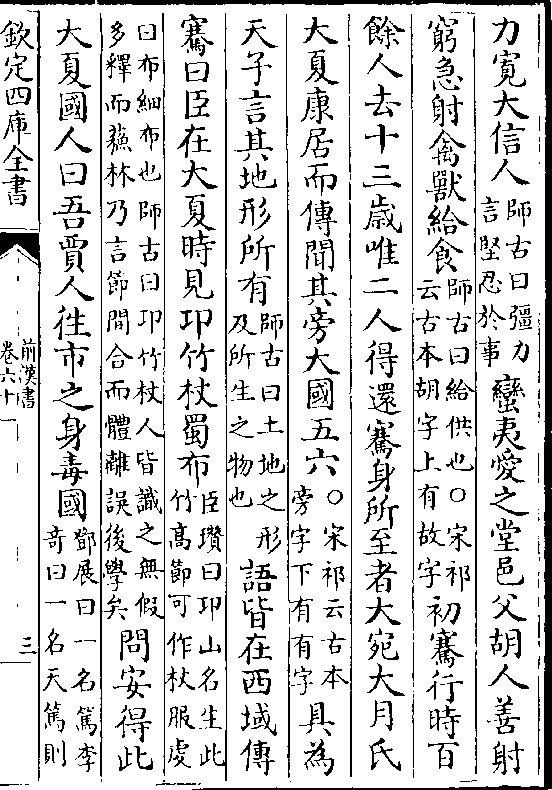 力寛大信人師古曰彊力言堅忍於事蠻夷愛之堂邑父胡人善射
窮急射禽獸給食師古曰給供也○宋祁云古本胡字上有故字初騫行時百
餘人去十三歲唯二人得還騫身所至者大宛大月氏
大夏康居而傳聞其旁大國五六○宋祁云古本旁字下有有字具為
天子言其地形所有師古曰土地之形及所生之物也語皆在西域傳
騫曰臣在大夏時見卭竹杖蜀布臣瓚曰卭山名生此竹髙節可作杖服䖍
曰布細布也師古曰卭竹杖人皆識之無假多釋而蘓林乃言節間合而體離誤後學矣問安得此
大夏國人曰吾賈人往市之身毒國鄧展曰一名篤李奇曰一名天篤則
欽定四庫全書
前漢書
卷六十
三